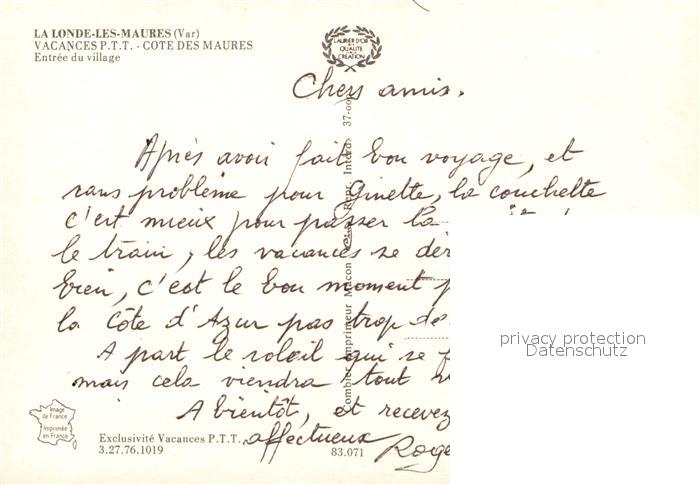 LA LONDE-LES-MAURES (Var)
VACANCES P.T.T. - COTE DES MAURES
Entrée du village
LAURIER D'OR
QUALITÉ
CRÉATION
Chers amis.
Après avoir fait bon voyage, et
sans problème pour Ginette, la couchette
c'est mieux pour passer la
le train, les vacances se dér
bien, c'est le bon moment p
la Côte d'Azur pas trop de
A part le soleil qui se f
mais cela viendra tout
A bientôt, et recevez
affectueux Roge
Combier Imprimeur Mâcon
Repr. Interd. 37-00
Image
de France
Imprimée
en France
Exclusivité Vacances P.T.T.
3.27.76.1019
83.071
privacy protection
Datenschutz